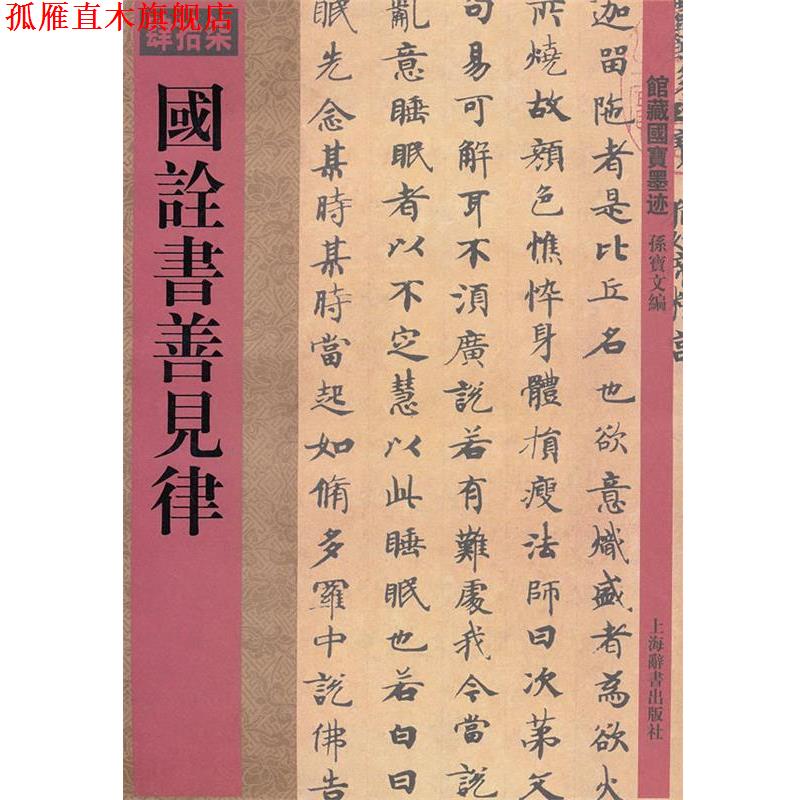 孤雁直木旗舰店
肆拾柒
國詮書善見律
館藏國寶墨迹
孫寶文編
上海辭書出版社
迦留陁者是比丘名也欲意熾盛者為欲火
所燒故顔色憔悴身體損瘦法師曰次第文
句易可解耳不須廣說若有難處我今當說
亂意睡眠者以不定慧以此睡眠也若白日
眠先念某時某時當起如脩多羅中說佛告